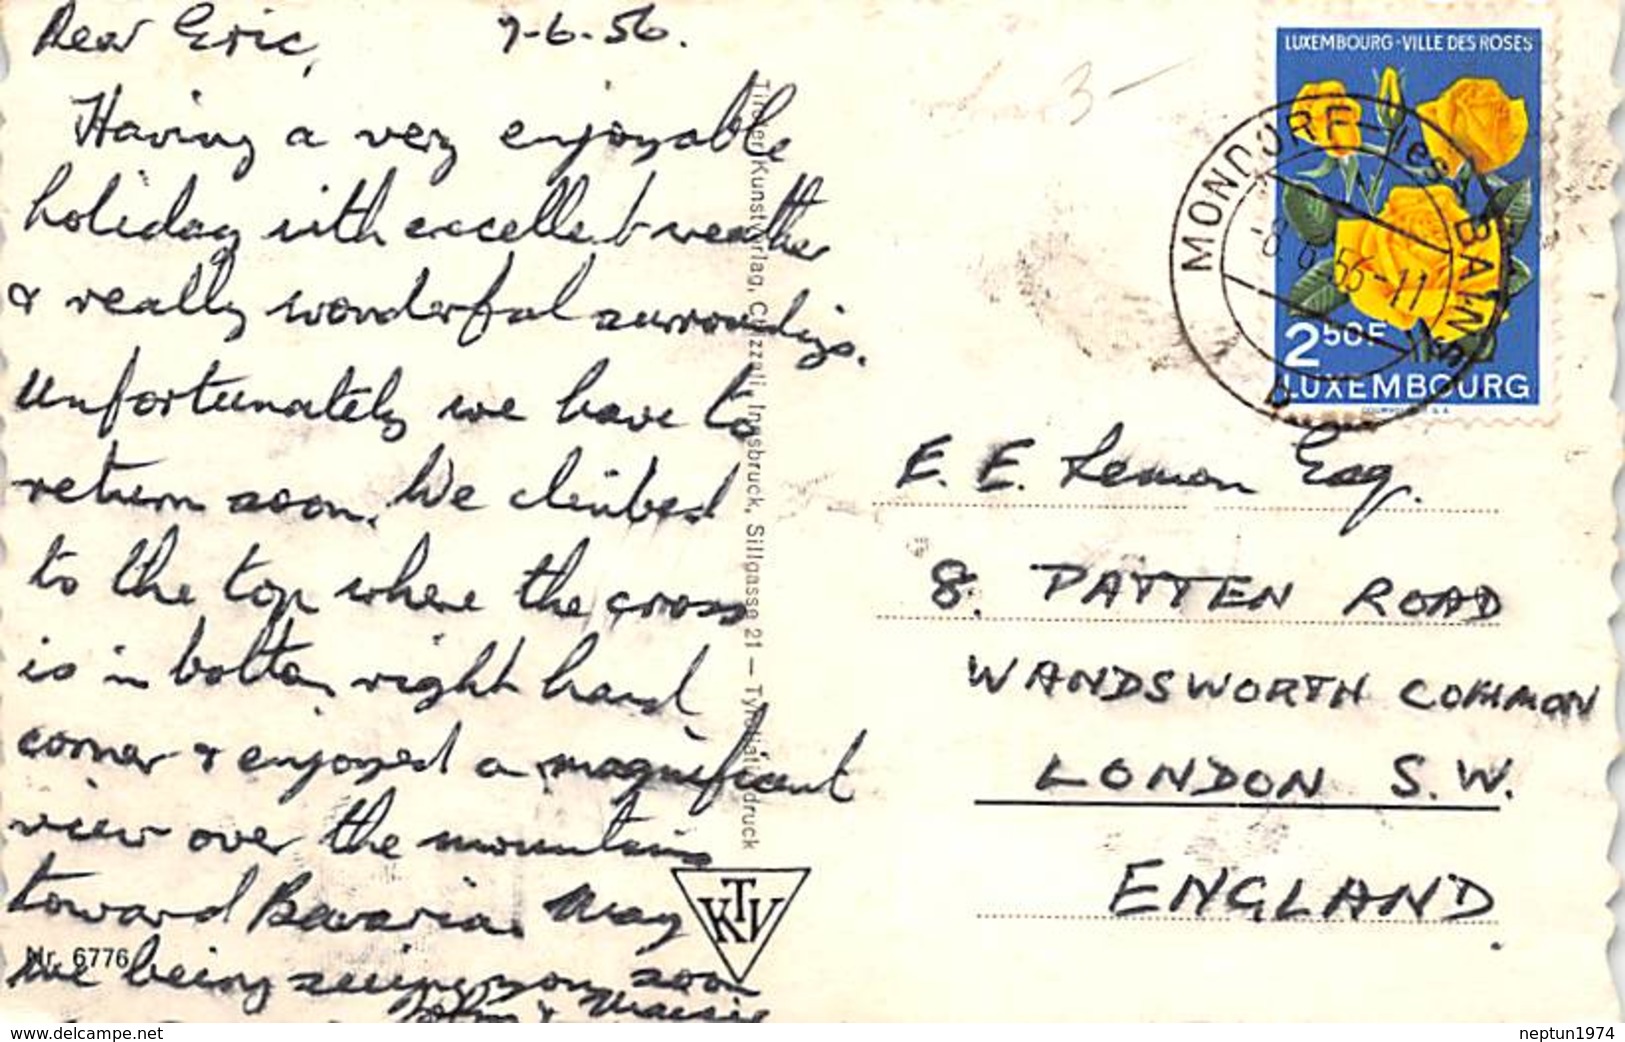 Dear Eric, 7-6-56.
Having a very enjoyable
holiday with excellent weather
& really wonderful surroundings.
Unfortunately we have to
return soon. We climbed
to the top where the cross
is in bottom right hand
corner & enjoyed a magnificent
view over the mountains
toward Bavaria. May
we being seeing you soon
John & Maisie
Nr. 6776
Tiroler Kunstverlag, Chizzali, Innsbruck, Sillgasse 21 — Tyroliatiefdruck
KTV
3-
LUXEMBOURG-VILLE DES ROSES
MONDORF-les-BAINS
8.6.56-11
2 50F
LUXEMBOURG
COURVOISIER S.A.
E. E. Lemon Esq.
8. PATTEN ROAD
WANDSWORTH COMMON
LONDON S.W.
ENGLAND.
www.delcampe.net
neptun1974